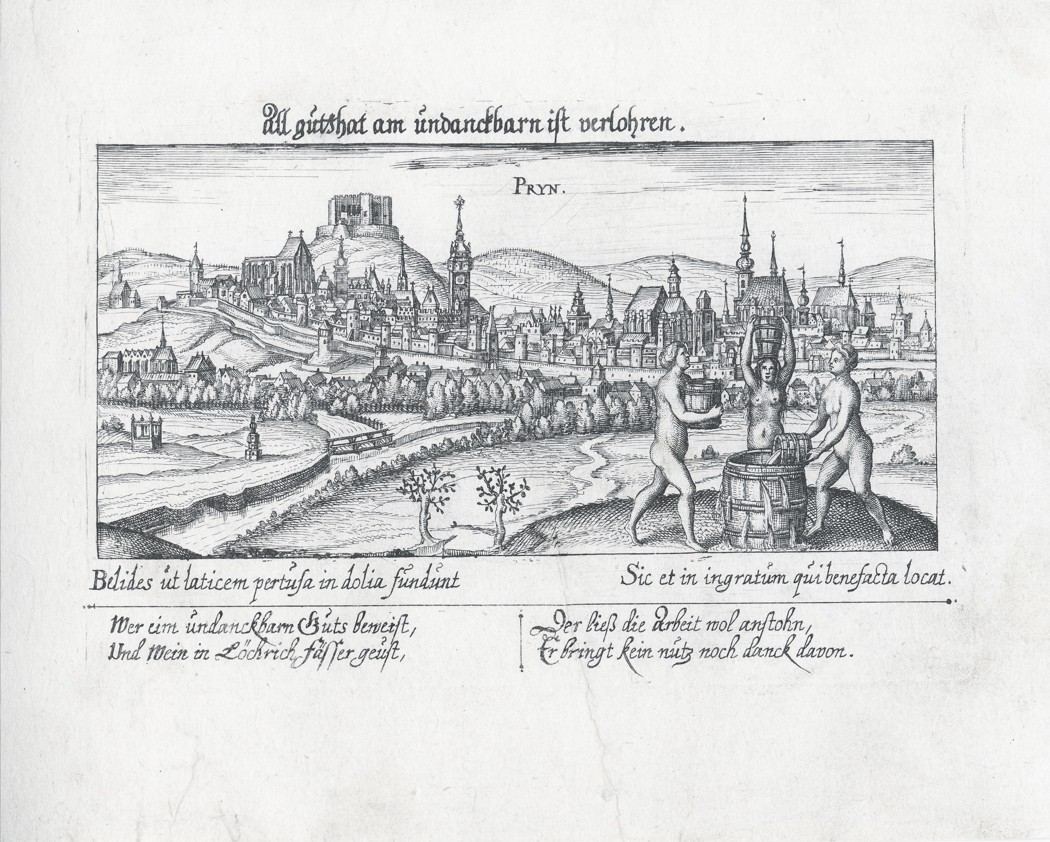 All gůtthat am ůndanckbarn ist verlohren.
PRYN.
Belides ůt laticem pertůsa in dolia fůndůnt
Sic et in ingratům qui benefacta locat.
Wer eim ůndanckbarn Gůts beweist,
Und Wein in Löchrich Fässer geůst,
Der ließ die Arbeit wol anstohn,
Er bringt kein nůtz noch danck davon.